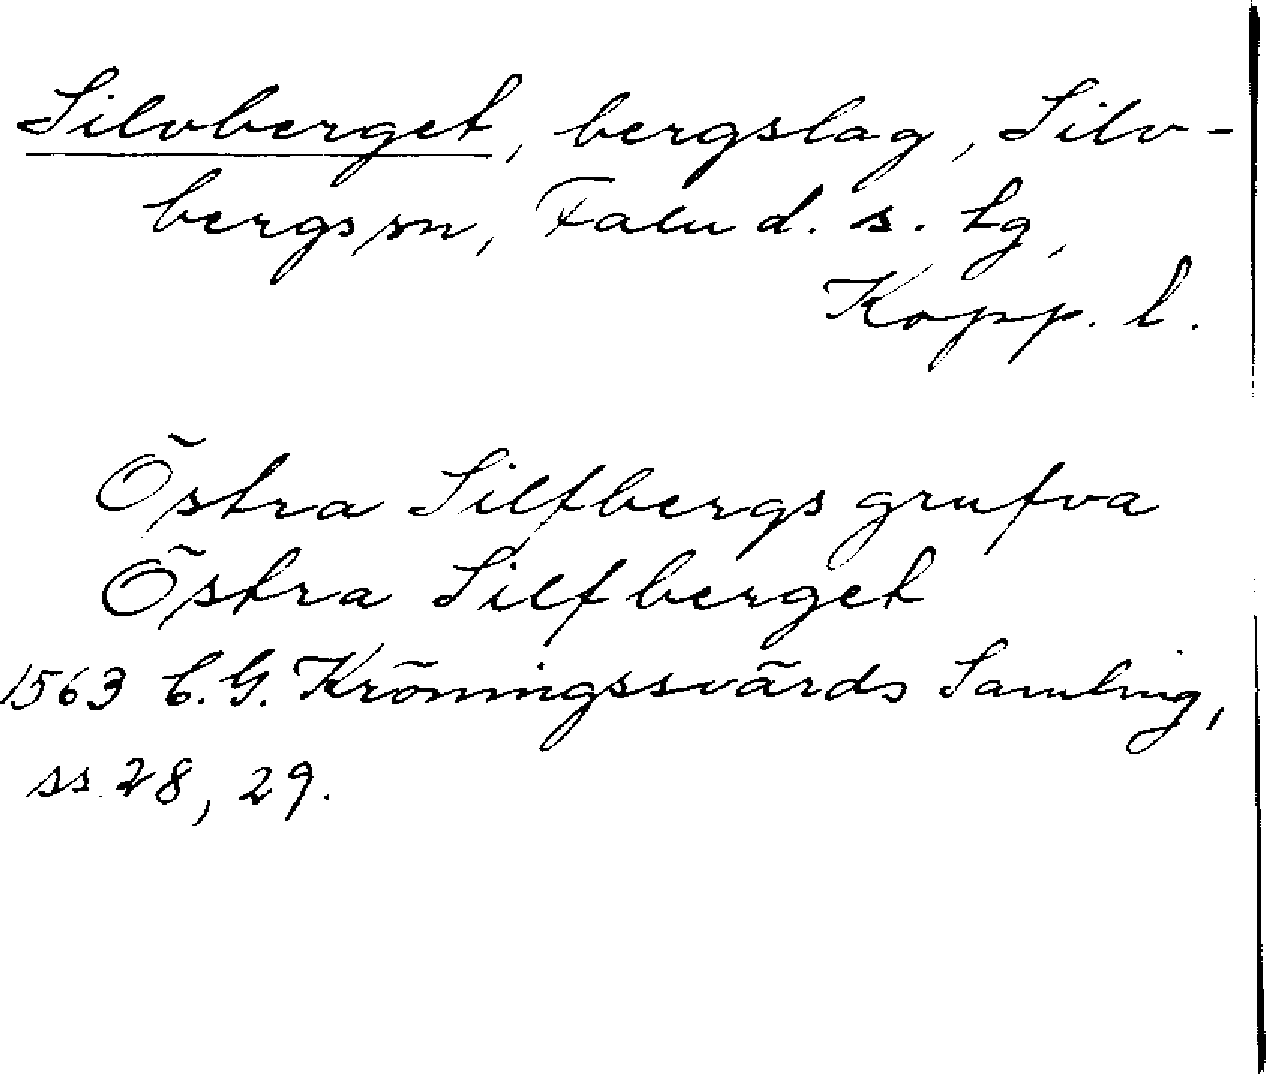 Silvberget, bergslag, Silv-
bergs sn, Falu d. s. tg,
Kopp. l.
Östra Silfbergs grufva
Östra Silfberget
1563 C. G. Kröningssvärds Samling,
ss. 28, 29.